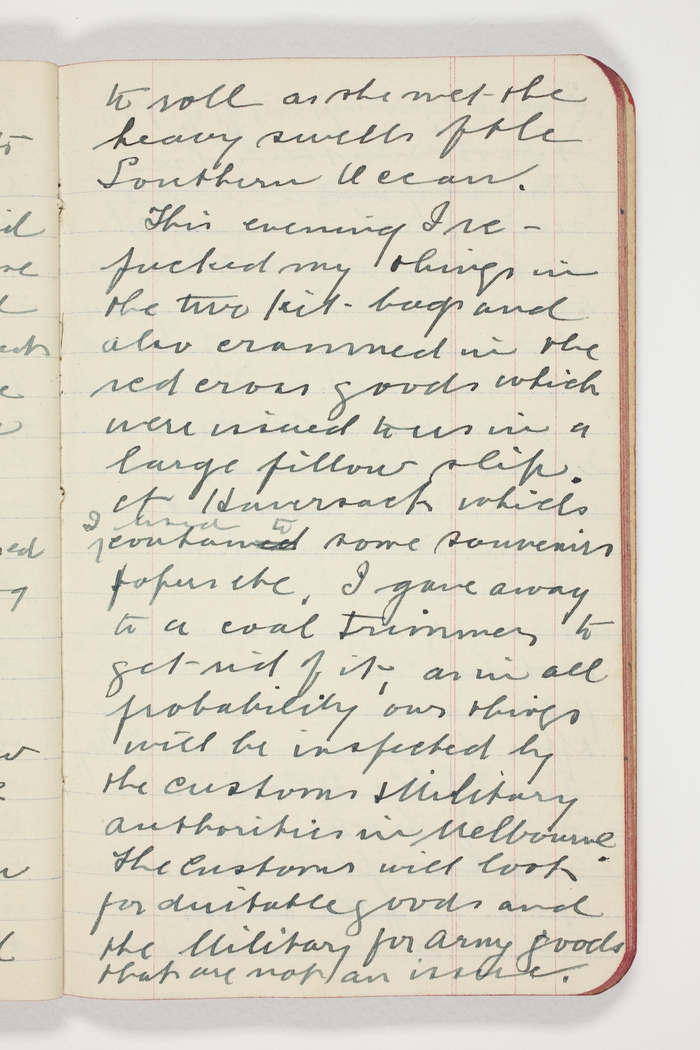 to roll as she met the
heavy swells of the
Southern Ocean.
This evening I re-
packed my things in
the two kit-bags and
also crammed in the
red cross goods which
were issued to us in a
large pillow slip.
A Haversack which
I used to
contained some souvenirs
papers etc, I gave away
to a coal trimmer to
get rid of it, as in all
probability our things
will be inspected by
the customs & Military
authorities in Melbourne.
The customs will look
for duitable goods and
the Military for Army goods
that are not an issue.